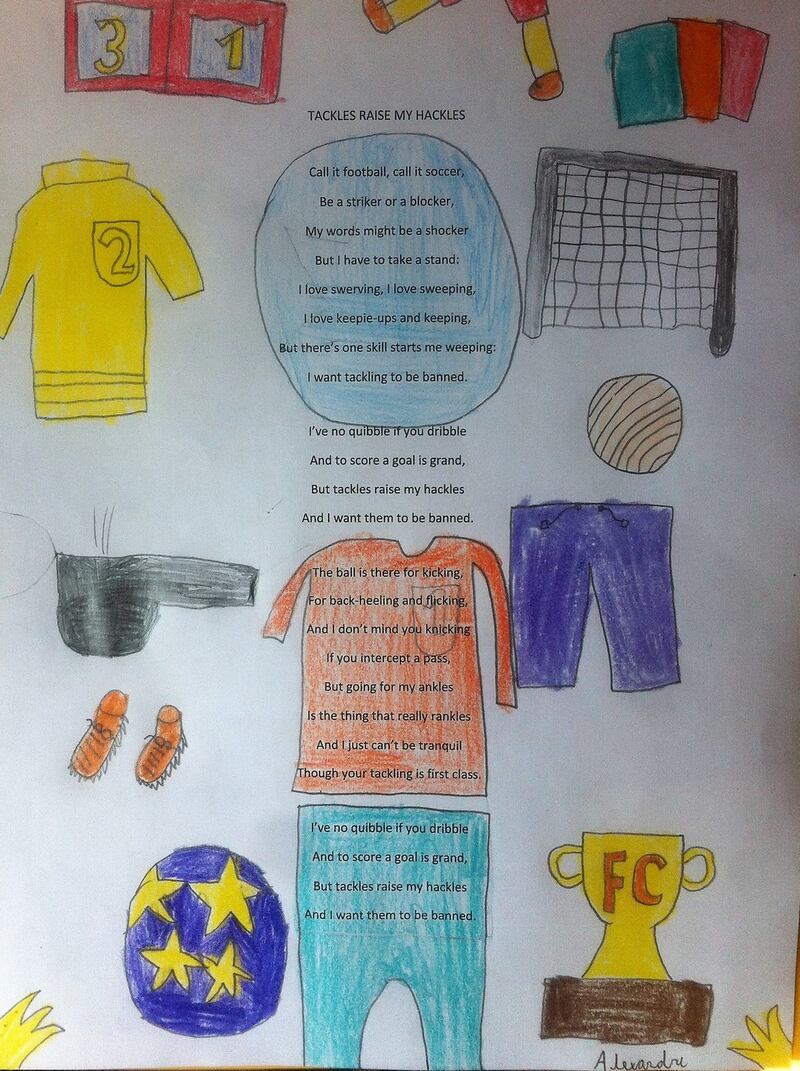 3 1
TACKLES RAISE MY HACKLES
Call it football, call it soccer,
Be a striker or a blocker,
My words might be a shocker
But I have to take a stand:
I love swerving, I love sweeping,
I love keepie-ups and keeping,
But there's one skill starts me weeping:
I want tackling to be banned.
2
I've no quibble if you dribble
And to score a goal is grand,
But tackles raise my hackles
And I want them to be banned.
The ball is there for kicking,
For back-heeling and flicking,
And I don't mind you knicking
If you intercept a pass,
But going for my ankles
Is the thing that really rankles
And I just can't be tranquil
Though your tackling is first class.
I've no quibble if you dribble
And to score a goal is grand,
But tackles raise my hackles
And I want them to be banned.
FC